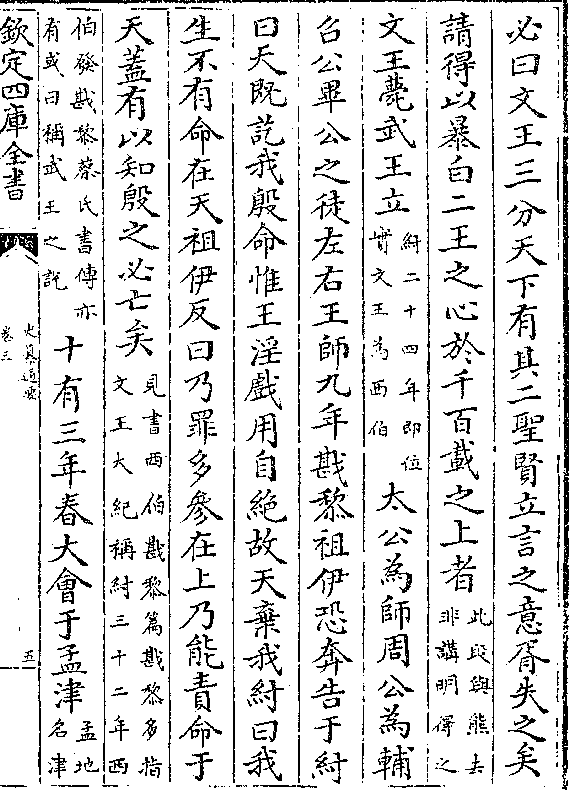 必曰文王三分天下有其二聖賢立言之意胥失之矣
請得以暴白二王之心於千百載之上者此段與熊去
非講明得之
文王薨武王立紂二十四年即位
文王為西伯
太公為師周公為輔
召公畢公之徒左右王師九年戡黎祖伊恐奔告于紂
曰天既訖我殷命惟王淫戲用自絕故天棄我紂曰我
生不有命在天祖伊反曰乃罪多參在上乃能責命于
天蓋有以知殷之必亡矣見書西伯戡黎篇戡黎多指
文王大紀稱紂三十二年西
伯發戡黎蔡氏書傳亦
有或曰稱武王之說
十有三年春大會于孟津孟地
名津
欽定四庫全書
史纂通要
卷三
五